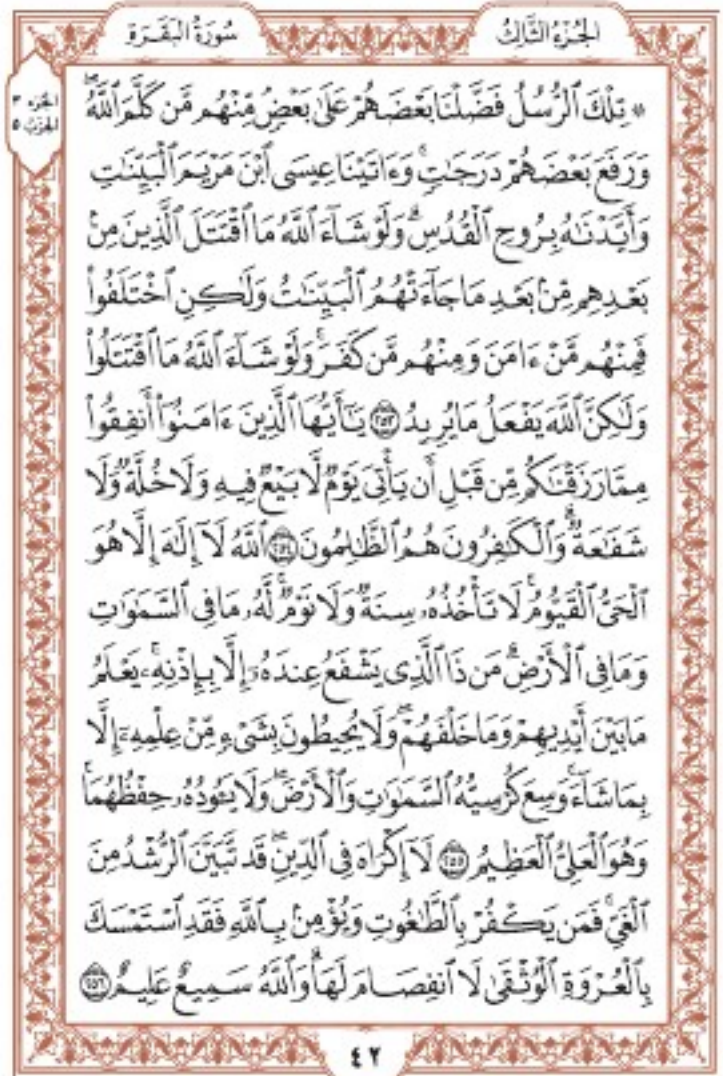 سُورَةُ البَقَرَةِ
الجُزْءُ الثَّالِثُ
الجزء ٣
الحزب ٥
۞ تِلْكَ ٱلرُّسُلُ فَضَّلْنَا بَعْضَهُمْ عَلَىٰ بَعْضٍۘ مِّنْهُم مَّن كَلَّمَ ٱللَّهُۖ
وَرَفَعَ بَعْضَهُمْ دَرَجَٰتٍۚ وَءَاتَيْنَا عِيسَى ٱبْنَ مَرْيَمَ ٱلْبَيِّنَٰتِ
وَأَيَّدْنَٰهُ بِرُوحِ ٱلْقُدُسِۗ وَلَوْ شَآءَ ٱللَّهُ مَا ٱقْتَتَلَ ٱلَّذِينَ مِنۢ
بَعْدِهِم مِّنۢ بَعْدِ مَا جَآءَتْهُمُ ٱلْبَيِّنَٰتُ وَلَٰكِنِ ٱخْتَلَفُوا۟
فَمِنْهُم مَّنْ ءَامَنَ وَمِنْهُم مَّن كَفَرَۚ وَلَوْ شَآءَ ٱللَّهُ مَا ٱقْتَتَلُوا۟
وَلَٰكِنَّ ٱللَّهَ يَفْعَلُ مَا يُرِيدُ ٢٥٣ يَٰٓأَيُّهَا ٱلَّذِينَ ءَامَنُوٓا۟ أَنفِقُوا۟
مِمَّا رَزَقْنَٰكُم مِّن قَبْلِ أَن يَأْتِىَ يَوْمٌ لَّا بَيْعٌ فِيهِ وَلَا خُلَّةٌ وَلَا
شَفَٰعَةٌۗ وَٱلْكَٰفِرُونَ هُمُ ٱلظَّٰلِمُونَ ٢٥٤ ٱللَّهُ لَآ إِلَٰهَ إِلَّا هُوَ
ٱلْحَىُّ ٱلْقَيُّومُۚ لَا تَأْخُذُهُۥ سِنَةٌ وَلَا نَوْمٌۚ لَّهُۥ مَا فِى ٱلسَّمَٰوَٰتِ
وَمَا فِى ٱلْأَرْضِۗ مَن ذَا ٱلَّذِى يَشْفَعُ عِندَهُۥٓ إِلَّا بِإِذْنِهِۦۚ يَعْلَمُ
مَا بَيْنَ أَيْدِيهِمْ وَمَا خَلْفَهُمْۖ وَلَا يُحِيطُونَ بِشَىْءٍ مِّنْ عِلْمِهِۦٓ إِلَّا
بِمَا شَآءَۚ وَسِعَ كُرْسِيُّهُ ٱلسَّمَٰوَٰتِ وَٱلْأَرْضَۖ وَلَا يَـُٔودُهُۥ حِفْظُهُمَاۚ
وَهُوَ ٱلْعَلِىُّ ٱلْعَظِيمُ ٢٥٥ لَآ إِكْرَاهَ فِى ٱلدِّينِۖ قَد تَّبَيَّنَ ٱلرُّشْدُ مِنَ
ٱلْغَىِّۚ فَمَن يَكْفُرْ بِٱلطَّٰغُوتِ وَيُؤْمِنۢ بِٱللَّهِ فَقَدِ ٱسْتَمْسَكَ
بِٱلْعُرْوَةِ ٱلْوُثْقَىٰ لَا ٱنفِصَامَ لَهَاۗ وَٱللَّهُ سَمِيعٌ عَلِيمٌ ٢٥٦
٤٢